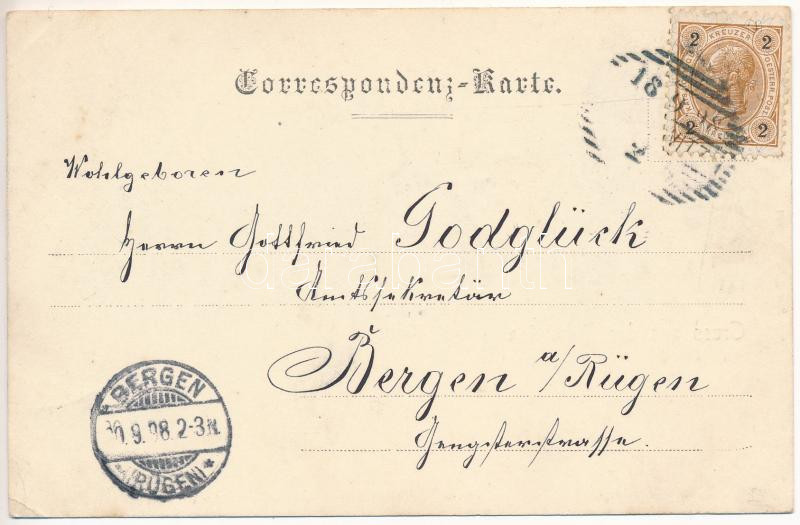 Correspondenz-Karte.
2 KREUZER 2
OESTERR. POST
2 2
18
Wohlgeboren
Herrn Gottfried Godglück
Amtssekretär
Bergen a/Rügen
Gengsterstrasse.
* BERGEN
9.98.2-3N.
(RÜGEN) *
darabanth